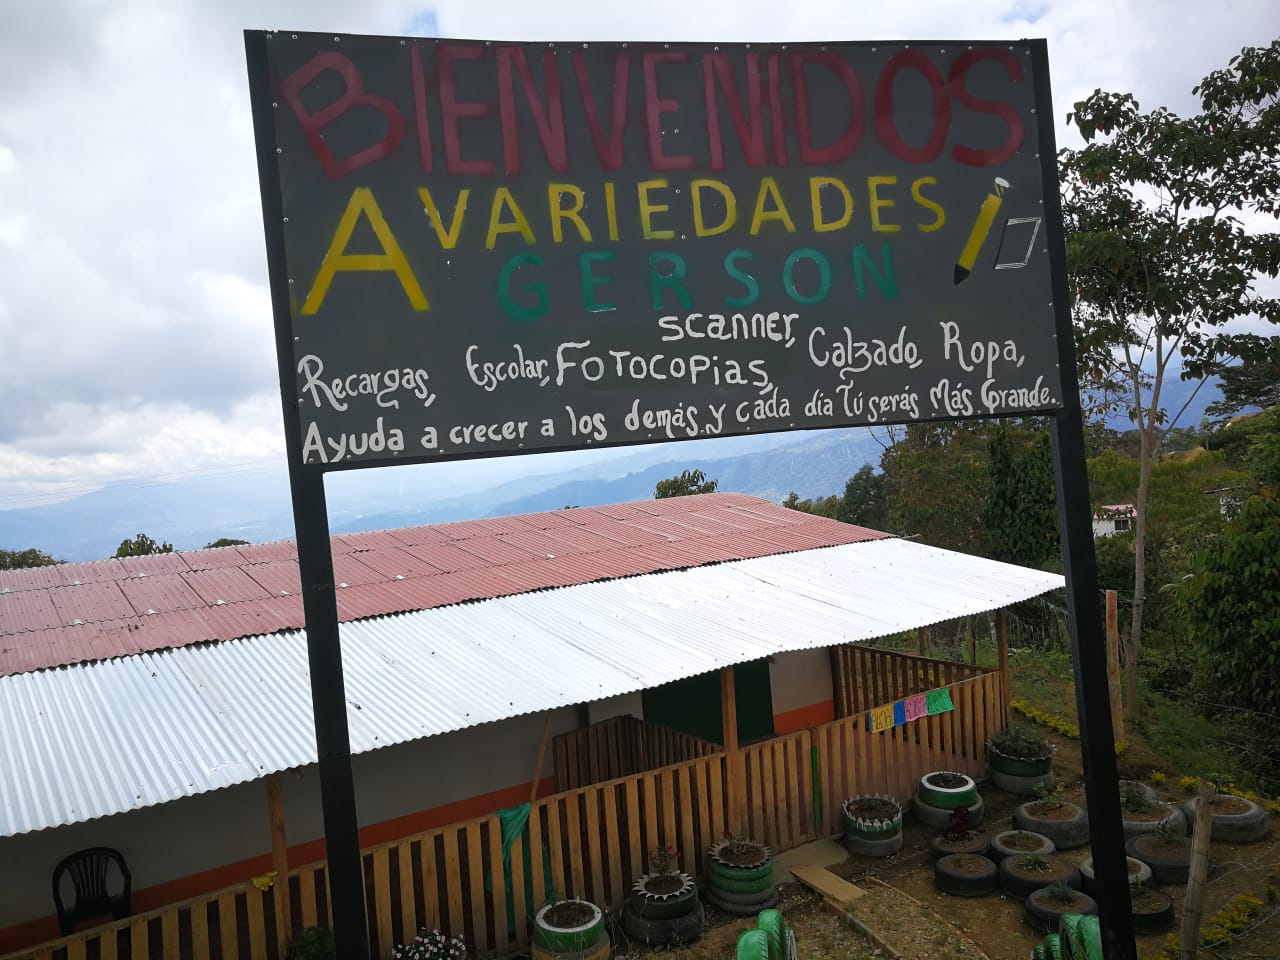 BIENVENIDOS
A VARIEDADES
GERSON
Recargas, Escolar, FOTOCOPIAS, scanner, Calzado, Ropa,
Ayuda a crecer a los demás y cada día Tú serás Más Grande.